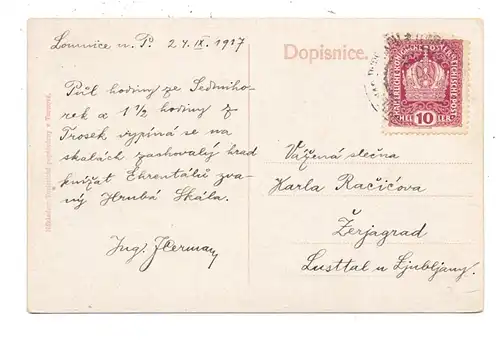 Lomnice n. P. 24/IX. 1917
Půl hodiny ze Sedmiho-
rek a 1 1/2 hodiny z
Trosek vypíná se na
skalách zachovalý hrad
knížat Ehrentálů zva-
ný Hrubá Skála.
Ing. JČerman
Dopisnice.
KAISERLICHE KÖNIGLICHE ÖSTERREICHISCHE POST
HELLER 10
Vážená slečna
Karla Račičova
Žerjagrad
Lusttal u Ljubljany.